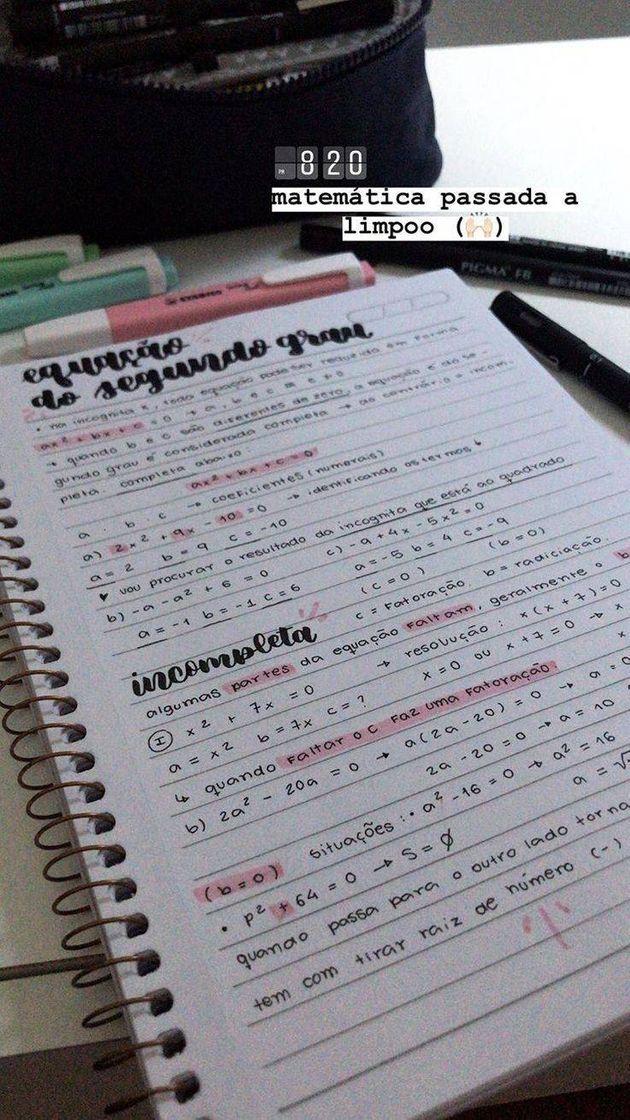 PM 8 20
matemática passada a
limpoo (🙌🏻)
PIGMA FB
equação
do segundo grau
• na incognita x, toda equação pode ser reduzida em forma
ax² + bx + c = 0 → a, b e c ∈ e ≠ 0
→ quando b e c são diferentes de zero, a equação é do se-
gundo grau é considerada completa → ao contrário = incom.
pleta. completa abaixo
ax² + bx + c = 0
a . b . c → coeficientes (numerais)
a) 2x² + 9x - 10 = 0 → identificando os termos
a = 2 b = 9 c = -10
♥ vou procurar o resultado da incognita que está ao quadrado
b) -a - a² + 6 = 0 c) -9 + 4x - 5x² = 0
a = -1 b = -1 c = 6 a = -5 b = 4 c = -9
incompleta (c = 0) (b = 0)
c = fatoração. b = radiciação.
algumas partes da equação faltam, geralmente o b
I x² + 7x = 0 → resolução: x(x + 7) = 0
a = x² b = 7x c = ? x = 0 ou x + 7 = 0 → x
↳ quando faltar o c faz uma fatoração x
b) 2a² - 20a = 0 → a(2a - 20) = 0 → a = 0
2a - 20 = 0 → a = 10
(b = 0) situações: • a² - 16 = 0 → a² = 16
• p² + 64 = 0 → S = Ø a = √
quando passa para o outro lado torna
tem com tirar raiz de número (-)